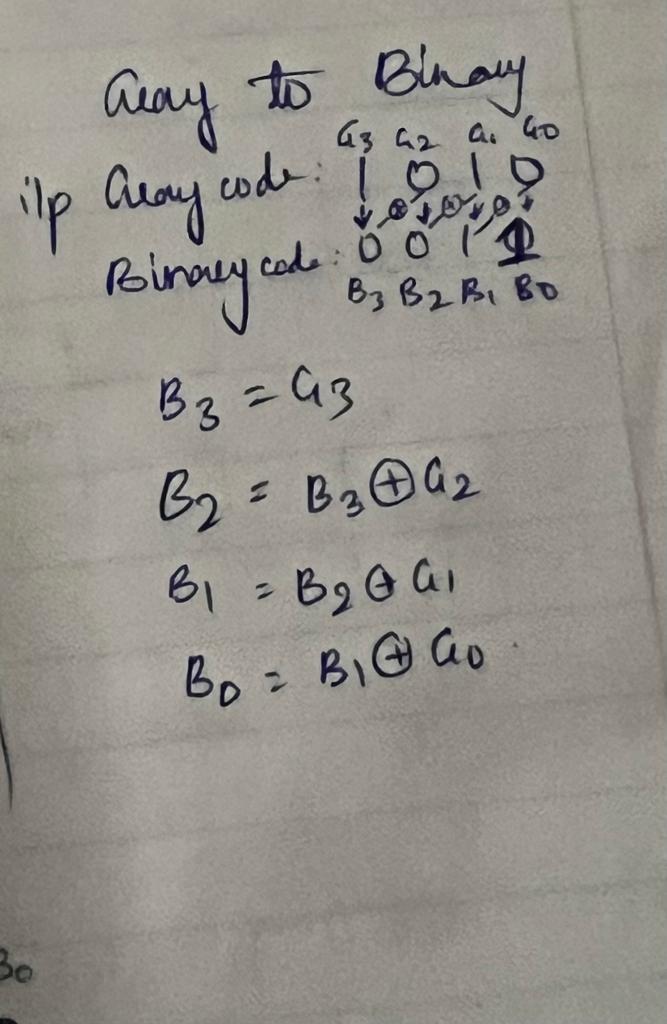 Gray to Binary
G3 G2 G1 G0
i/p Gray code: 1 0 1 0
⊕ ⊕ ⊕
Binary code: 0 0 1 1
B3 B2 B1 B0
B3 = G3
B2 = B3 ⊕ G2
B1 = B2 ⊕ G1
B0 = B1 ⊕ G0
Bo